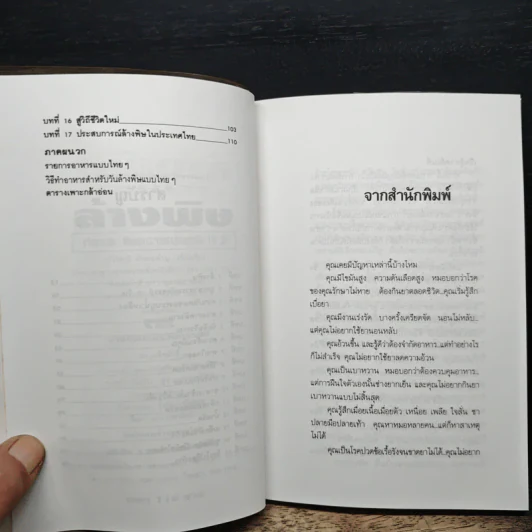 บทที่ 16 สู่วิถีชีวิตใหม่ 103
บทที่ 17 ประสบการณ์ล้างพิษในประเทศไทย 110
ภาคผนวก
รายการอาหารแบบไทย ๆ
วิธีทำอาหารสำหรับวันล้างพิษแบบไทย ๆ
ตารางเพาะกล้าอ่อน
จากสำนักพิมพ์
คุณเคยมีปัญหาเหล่านี้บ้างไหม
คุณมีไขมันสูง ความดันเลือดสูง หมอบอกว่าโรค
ของคุณรักษาไม่หาย ต้องกินยาตลอดชีวิต..คุณเริ่มรู้สึก
เบื่อยา
คุณมีงานเร่งรัด บางครั้งเครียดจัด นอนไม่หลับ..
แต่คุณไม่อยากใช้ยานอนหลับ
คุณอ้วนขึ้น และรู้ดีว่าต้องจำกัดอาหาร..แต่ทำอย่างไร
ก็ไม่สำเร็จ คุณไม่อยากใช้ยาลดความอ้วน
คุณเป็นเบาหวาน หมอบอกว่าต้องควบคุมอาหาร..
แต่การฝืนใจตัวเองนั้นช่างยากเย็น และคุณไม่อยากกินยา
เบาหวานแบบไม่สิ้นสุด
คุณรู้สึกเมื่อยเนื้อเมื่อยตัว เหนื่อย เพลีย ใจสั่น ชา
ปลายมือปลายเท้า คุณหาหมอหลายคน..แต่ก็หาสาเหตุ
ไม่ได้
คุณเป็นโรคปวดข้อเรื้อรังจนขาดยาไม่ได้..คุณไม่อยาก